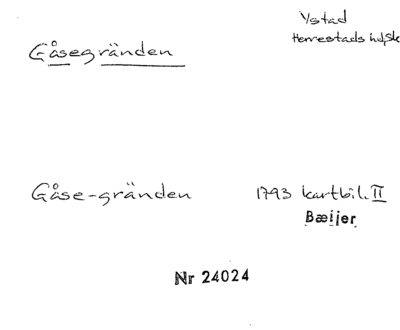 Ystad
Herrestads hd, Sk
Gåsegränden
Gåse-gränden 1793 kartbil. II
Bæijer
Nr 24024